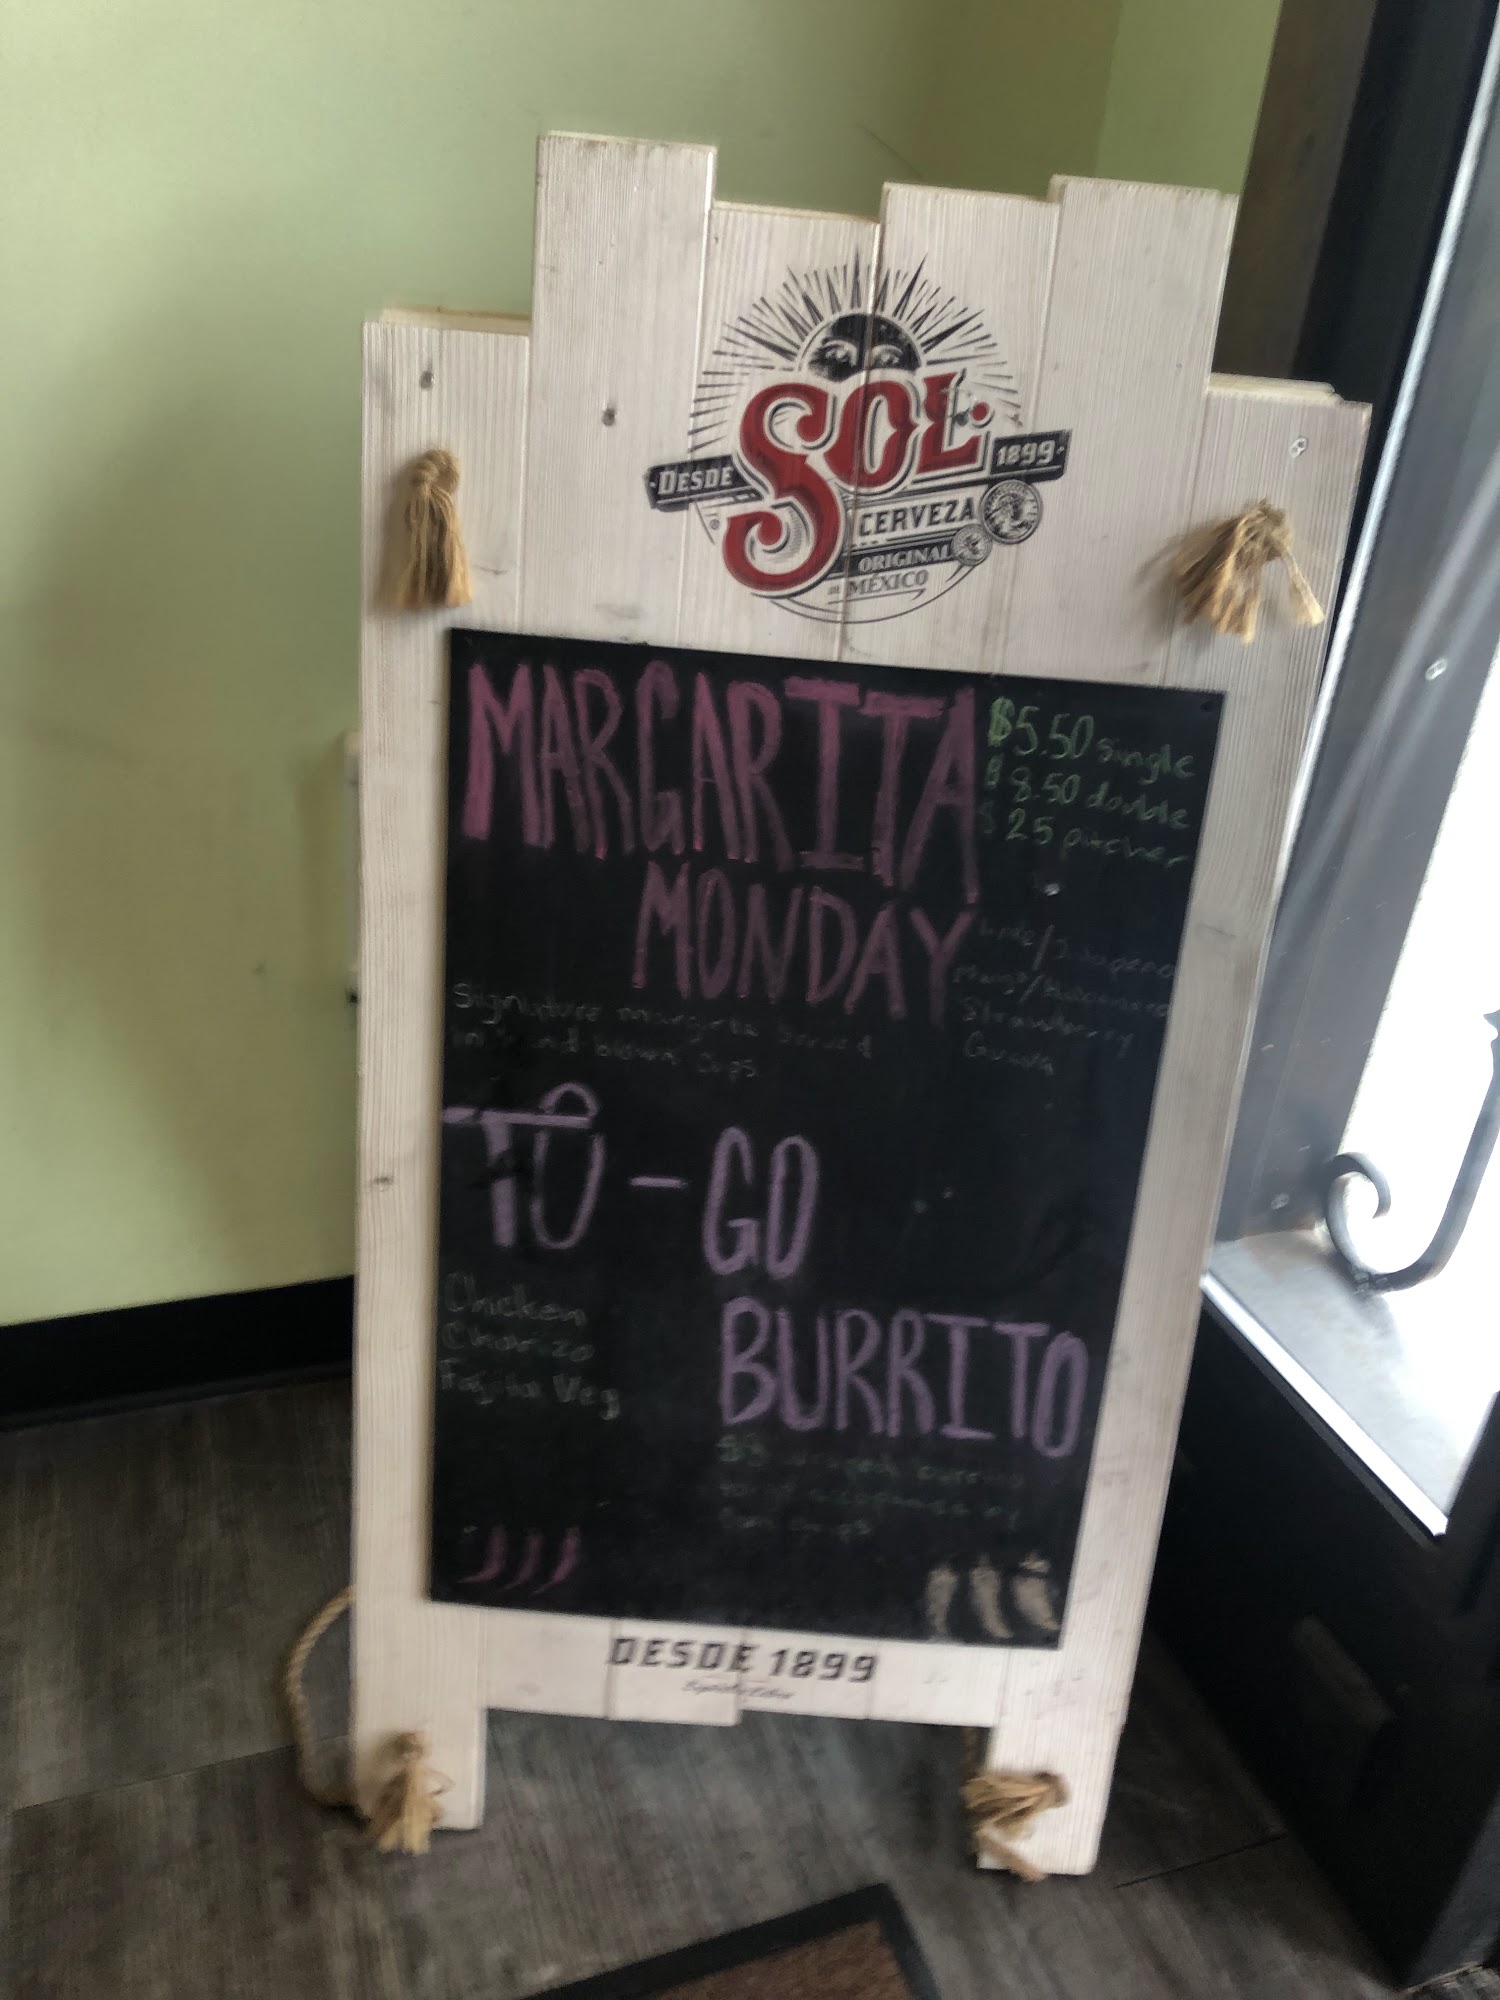 DESDE SOL 1899
CERVEZA
ORIGINAL
MÉXICO
MARGARITA
MONDAY
$5.50 single
$8.50 double
$25 pitcher
Jalapeno
Strawberry
Guava
Signature margirta served
in blown cups
TO-GO
BURRITO
Chicken
Chorizo
Fajita Veg
DESDE 1899